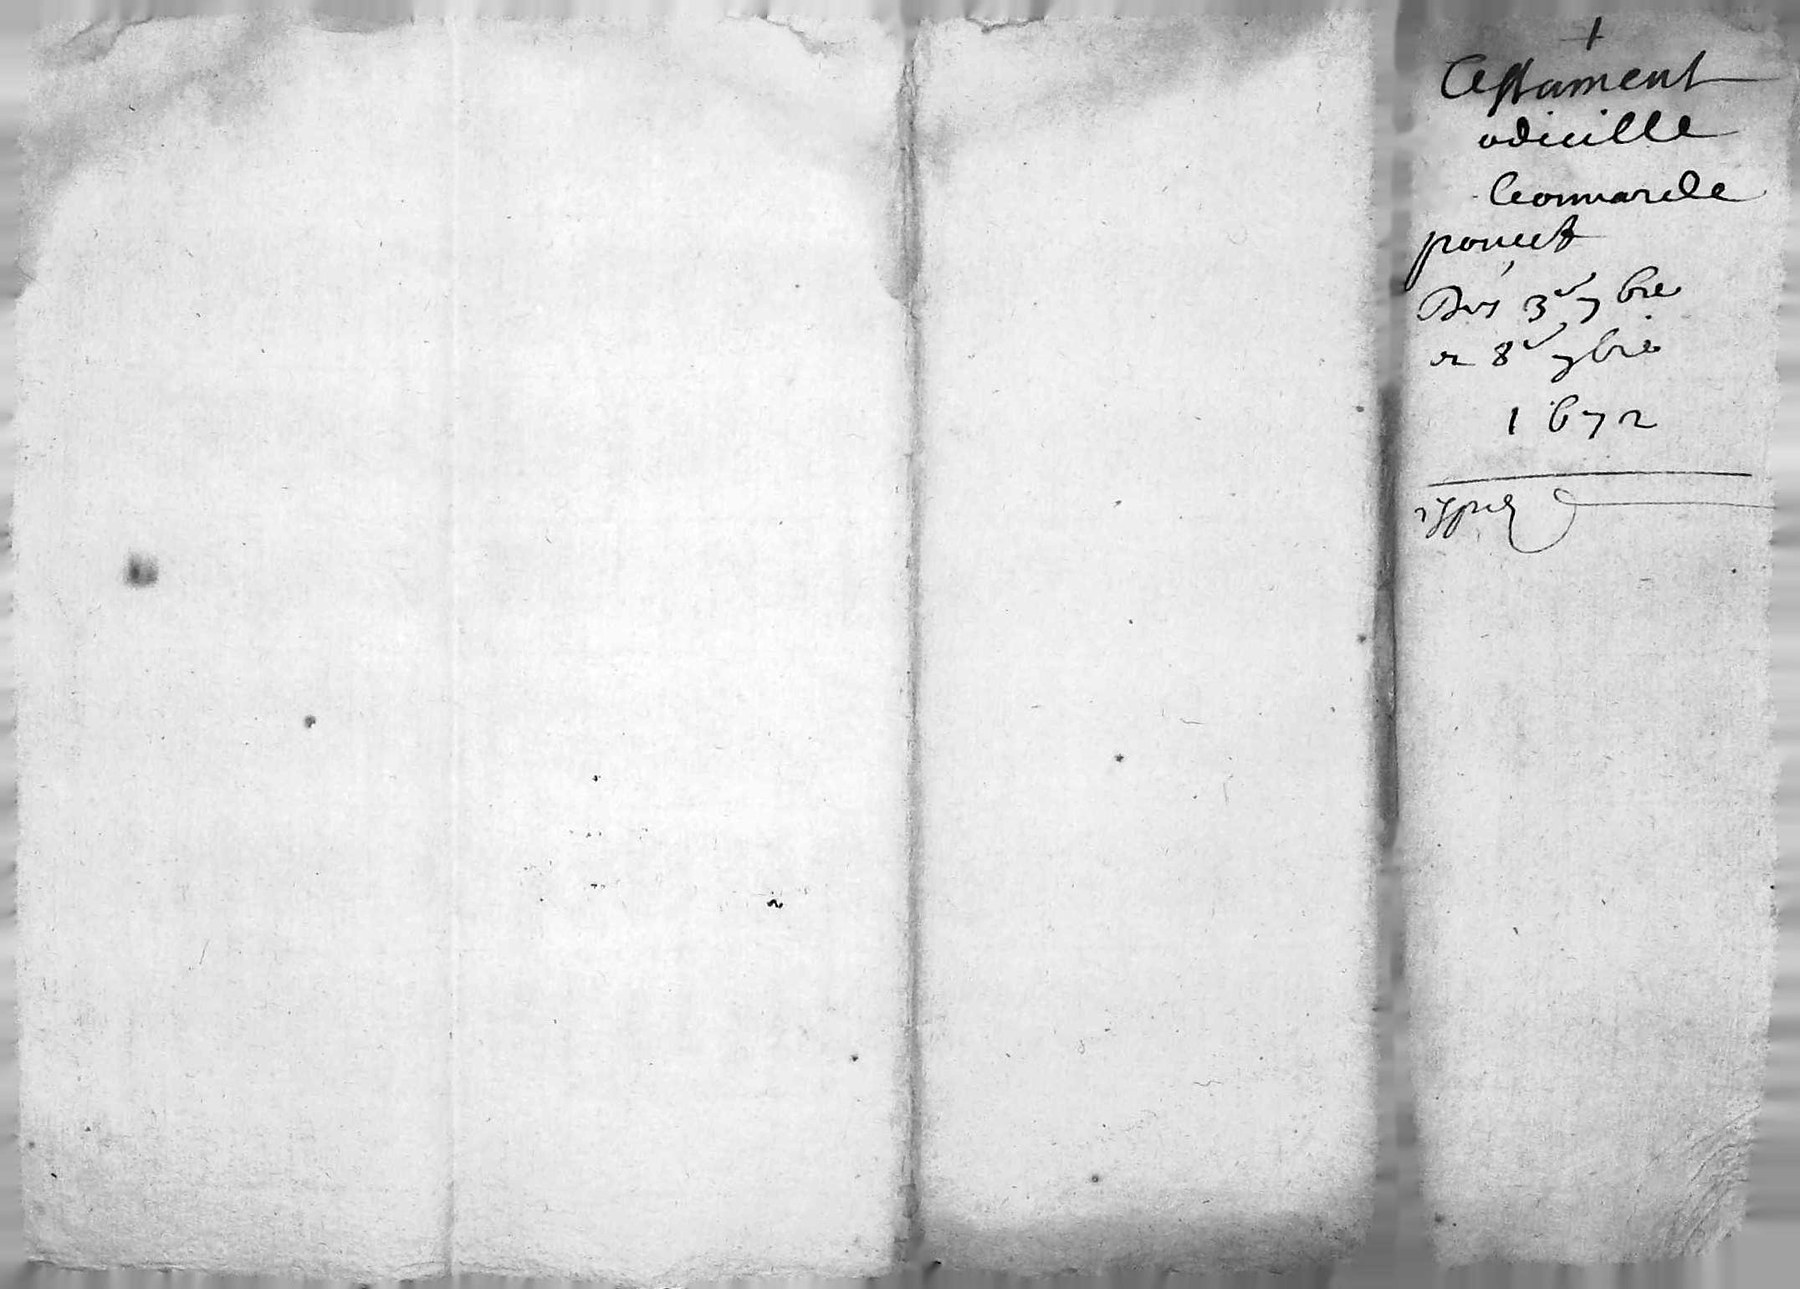 +
Testament
codicille
Leonnarde
poncet
Des 3e 7bre
et 8e 7bre
1672